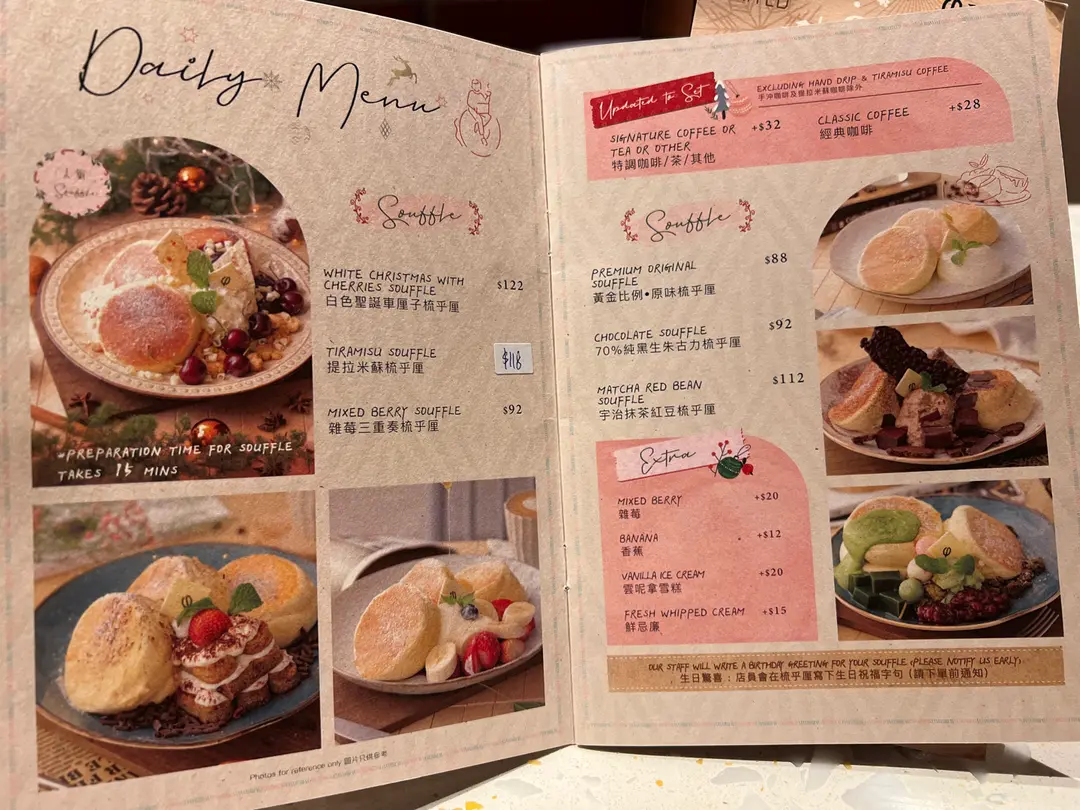 Daily Menu
人氣
Souffle
Souffle
WHITE CHRISTMAS WITH
CHERRIES SOUFFLE
$122
白色聖誕車厘子梳乎厘
TIRAMISU SOUFFLE
$118
提拉米蘇梳乎厘
MIXED BERRY SOUFFLE
$92
雜莓三重奏梳乎厘
*PREPARATION TIME FOR SOUFFLE
TAKES 15 MINS
Photos for reference only 圖片只供參考
Updated to Set
EXCLUDING HAND DRIP & TIRAMISU COFFEE
手沖咖啡及提拉米蘇咖啡除外
SIGNATURE COFFEE OR
TEA OR OTHER
+$32
特調咖啡/茶/其他
CLASSIC COFFEE
+$28
經典咖啡
Souffle
PREMIUM ORIGINAL
SOUFFLE
$88
黃金比例•原味梳乎厘
CHOCOLATE SOUFFLE
$92
70%純黑生朱古力梳乎厘
MATCHA RED BEAN
SOUFFLE
$112
宇治抹茶紅豆梳乎厘
Extra
MIXED BERRY
+$20
雜莓
BANANA
+$12
香蕉
VANILLA ICE CREAM
+$20
雲呢拿雪糕
FRESH WHIPPED CREAM
+$15
鮮忌廉
OUR STAFF WILL WRITE A BIRTHDAY GREETING FOR YOUR SOUFFLE (PLEASE NOTIFY US EARLY)
生日驚喜：店員會在梳乎厘寫下生日祝福字句 (請下單前通知)